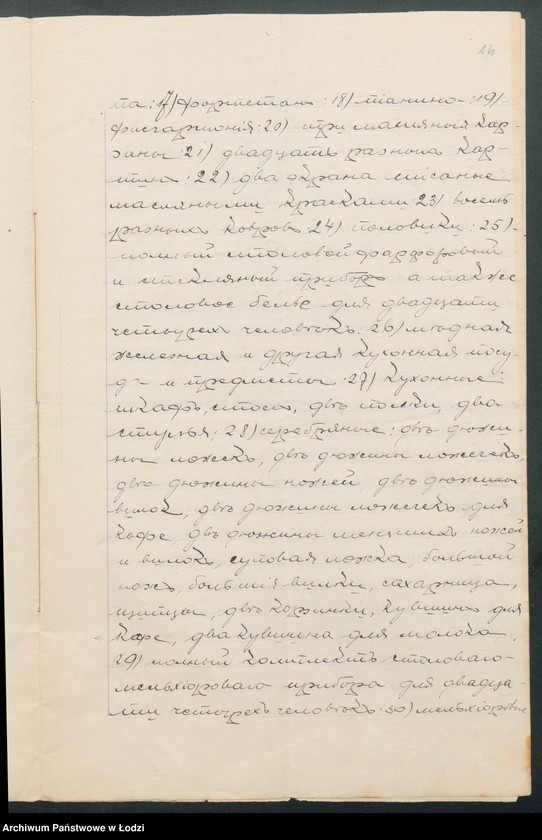 14
та: 17) фортепіано: 18) піанино: 19)
фисгармонія: 20) три масляныя кар-
тины: 21) двадцать разныхъ кар-
тинъ: 22) два экрана писанные
масляными красками: 23) восемь
разныхъ ковровъ: 24) половики: 25)
полный столовой фарфоровый
и стеклянный приборъ а также
столовое белье для двадцати
четырехъ человѣкъ: 26) мѣдная
желѣзная и другая кухонная посу-
да и предметы: 27) кухонные:
шкафъ, столъ, двѣ полки, два
стулья: 28) серебряные: двѣ дюжи-
ны ложекъ, двѣ дюжины ложечекъ,
двѣ дюжины ножей двѣ дюжины
вилокъ, двѣ дюжины ложечекъ для
кофе, двѣ дюжины меньшихъ ножей
и вилокъ, суповая ложка, большой
ножъ, большія вилки, сахарница,
щипцы, двѣ корзинки, кувшинъ для
кофе, два кувшина для молока,
29) полный комплектъ столоваго
мельхіороваго прибора для двадца-
ти четырехъ человѣкъ: 30) мельхіоровые
Archiwum Państwowe w Łodzi